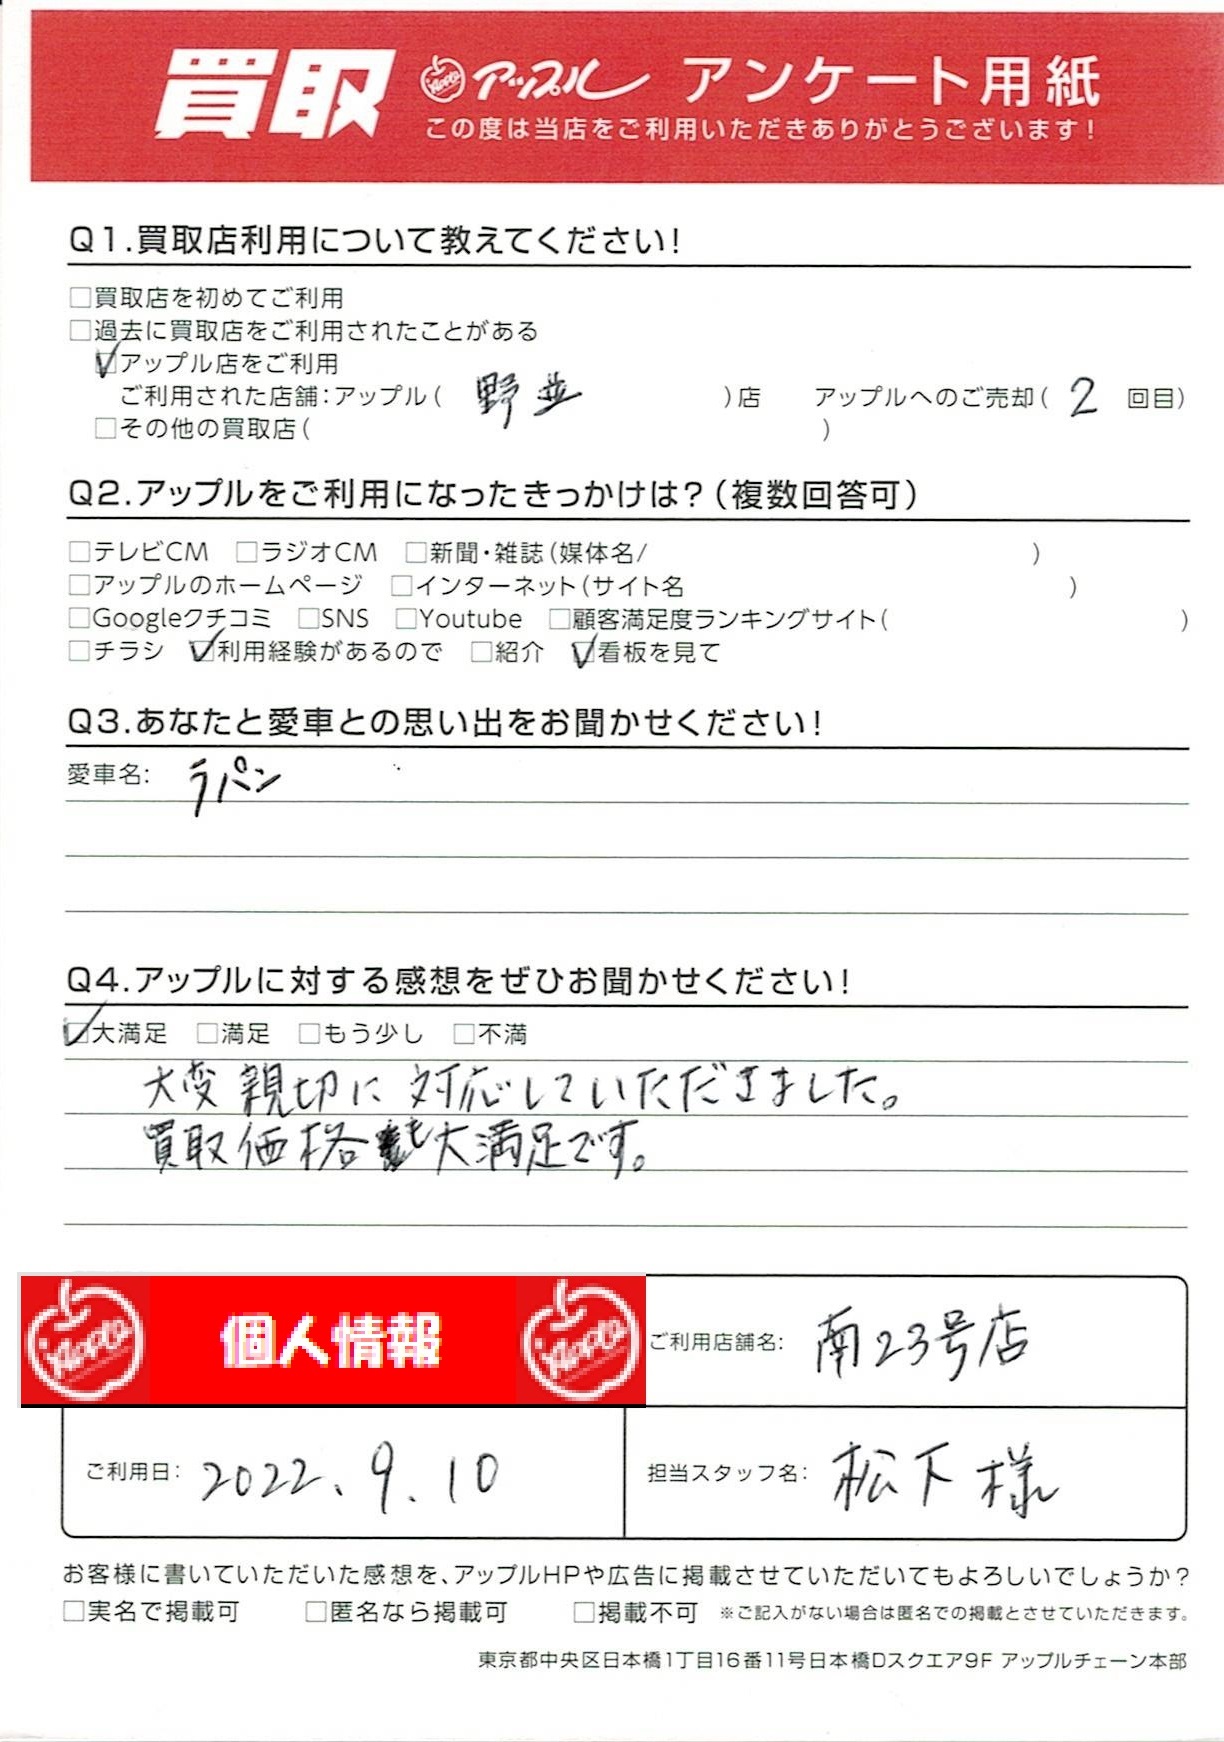 買取 Apple アップル アンケート用紙
この度は当店をご利用いただきありがとうございます!
Q1.買取店利用について教えてください!
□買取店を初めてご利用
□過去に買取店をご利用されたことがある
☑アップル店をご利用
ご利用された店舗:アップル( 野並 )店 アップルへのご売却( 2 回目)
□その他の買取店( )
Q2.アップルをご利用になったきっかけは?(複数回答可)
□テレビCM □ラジオCM □新聞・雑誌(媒体名/ )
□アップルのホームページ □インターネット(サイト名 )
□Googleクチコミ □SNS □Youtube □顧客満足度ランキングサイト( )
□チラシ ☑利用経験があるので □紹介 ☑看板を見て
Q3.あなたと愛車との思い出をお聞かせください!
愛車名: ラパン
Q4.アップルに対する感想をぜひお聞かせください!
☑大満足 □満足 □もう少し □不満
大変親切に対応していただきました。
買取価格も大満足です。
Apple 個人情報 Apple
ご利用店舗名: 南23号店
ご利用日: 2022.9.10
担当スタッフ名: 松下様
お客様に書いていただいた感想を、アップルHPや広告に掲載させていただいてもよろしいでしょうか?
□実名で掲載可 □匿名なら掲載可 □掲載不可 ※ご記入がない場合は匿名での掲載とさせていただきます。
東京都中央区日本橋1丁目16番11号日本橋Dスクエア9F アップルチェーン本部